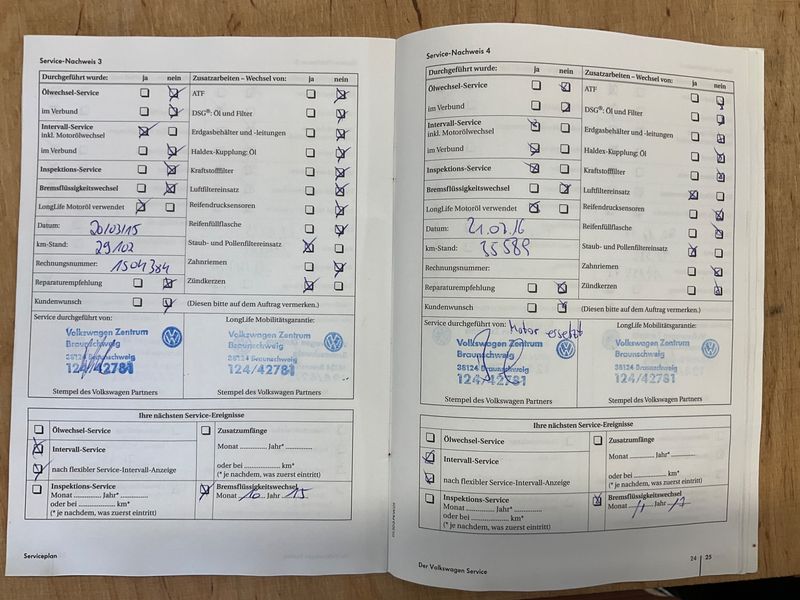 Service-Nachweis 3
Durchgeführt wurde: ja nein Zusatzarbeiten – Wechsel von: ja nein
Ölwechsel-Service ATF
im Verbund DSG®: Öl und Filter
Intervall-Service
inkl. Motorölwechsel Erdgasbehälter und -leitungen
im Verbund Haldex-Kupplung: Öl
Inspektions-Service Kraftstofffilter
Bremsflüssigkeitswechsel Luftfiltereinsatz
LongLife Motoröl verwendet Reifendrucksensoren
Datum: 20/03/15 Reifenfüllflasche
km-Stand: 29102 Staub- und Pollenfiltereinsatz
Rechnungsnummer: 1504384 Zahnriemen
Reparaturempfehlung Zündkerzen
Kundenwunsch (Diesen bitte auf dem Auftrag vermerken.)
Service durchgeführt von: LongLife Mobilitätsgarantie:
Volkswagen Zentrum Volkswagen Zentrum
Braunschweig Braunschweig
38124 Braunschweig 38124 Braunschweig
124/42781 124/42781
Stempel des Volkswagen Partners Stempel des Volkswagen Partners
Ihre nächsten Service-Ereignisse
Ölwechsel-Service Zusatzumfänge
Intervall-Service Monat ............ Jahr* ............
nach flexibler Service-Intervall-Anzeige oder bei ................ km*
(* je nachdem, was zuerst eintritt)
Inspektions-Service Bremsflüssigkeitswechsel
Monat ............ Jahr* ............ Monat 10 Jahr 15
oder bei ................ km*
(* je nachdem, was zuerst eintritt)
Serviceplan
Service-Nachweis 4
Durchgeführt wurde: ja nein Zusatzarbeiten – Wechsel von: ja nein
Ölwechsel-Service ATF
im Verbund DSG®: Öl und Filter
Intervall-Service
inkl. Motorölwechsel Erdgasbehälter und -leitungen
im Verbund Haldex-Kupplung: Öl
Inspektions-Service Kraftstofffilter
Bremsflüssigkeitswechsel Luftfiltereinsatz
LongLife Motoröl verwendet Reifendrucksensoren
Datum: 21.07.16 Reifenfüllflasche
km-Stand: 35589 Staub- und Pollenfiltereinsatz
Rechnungsnummer: Zahnriemen
Reparaturempfehlung Zündkerzen
Kundenwunsch (Diesen bitte auf dem Auftrag vermerken.)
Service durchgeführt von: Motor ersetzt LongLife Mobilitätsgarantie:
Volkswagen Zentrum Volkswagen Zentrum
Braunschweig Braunschweig
38124 Braunschweig 38124 Braunschweig
124/42781 124/42781
Stempel des Volkswagen Partners Stempel des Volkswagen Partners
Ihre nächsten Service-Ereignisse
Ölwechsel-Service Zusatzumfänge
Intervall-Service Monat ............ Jahr* ............
nach flexibler Service-Intervall-Anzeige oder bei ................ km*
(* je nachdem, was zuerst eintritt)
Inspektions-Service Bremsflüssigkeitswechsel
Monat ............ Jahr* ............ Monat 11 Jahr 17
oder bei ................ km*
(* je nachdem, was zuerst eintritt)
Der Volkswagen Service 24 | 25